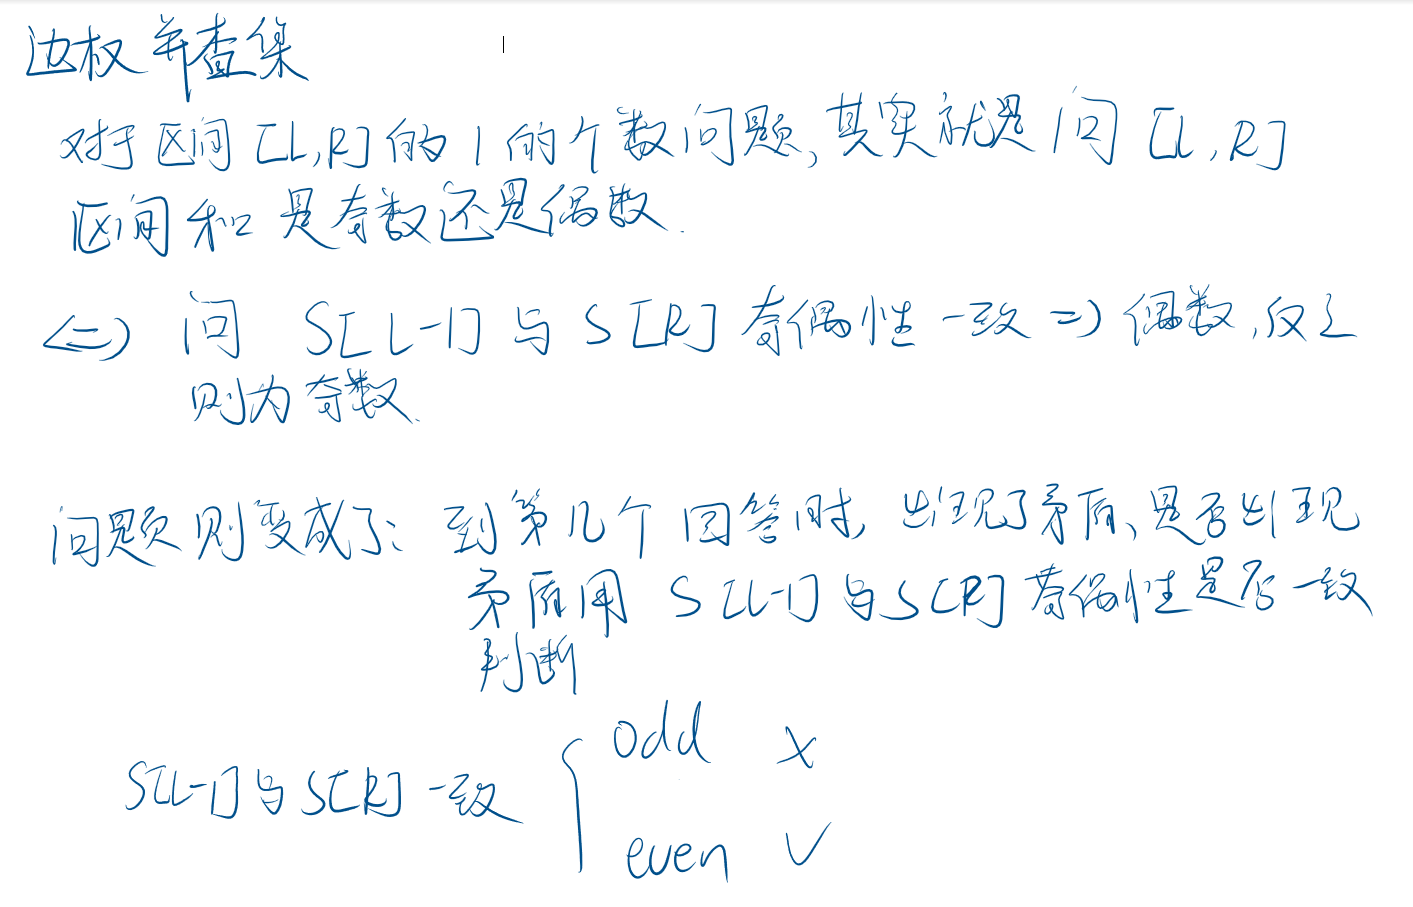 边权并查集
对于区间[L,R]的1的个数问题,其实就是问[L,R]
区间和是奇数还是偶数.
<=> 问 S[L-1]与S[R]奇偶性一致=>偶数,反之
则为奇数.
问题则变成了: 到第几个回答时,出现了矛盾、是否出现
矛盾用 S[L-1]与S[R]奇偶性是否一致
判断
odd x
S[L-1]与S[R]一致
even √